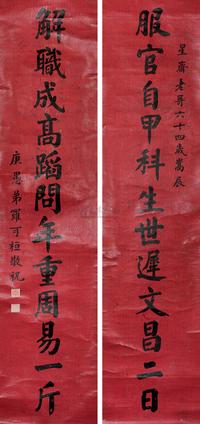 星齋老哥六十四歲嵩辰
服官自甲科生世遲文昌二日
解職成高蹈問年重周易一斤
庚愚弟羅可桓敬祝